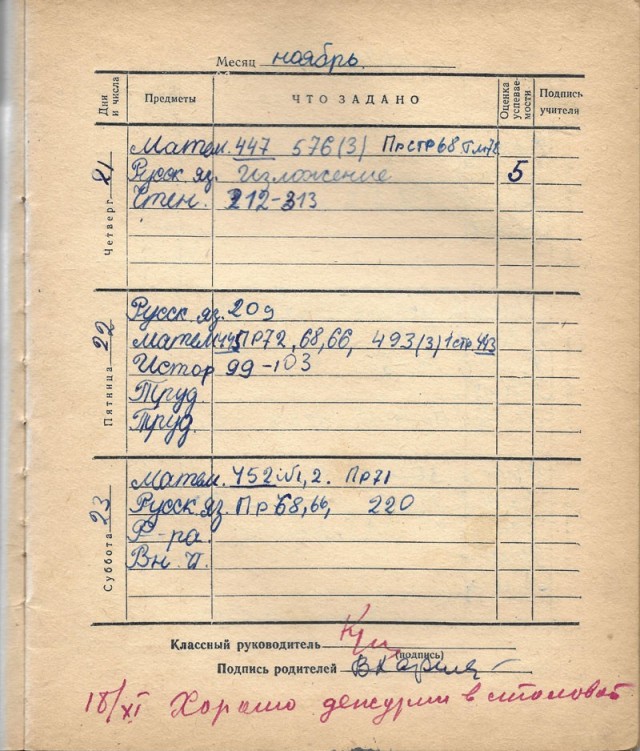 Месяц ноябрь
Дни и числа Предметы ЧТО ЗАДАНО Оценка успеваемости Подпись учителя
Четверг 21
Матем. 447 576(3) Пр стр 68
Русск яз. Изложение 5
Чтен. 212-313
Пятница 22
Русск яз. 209
Матем Пр72, 68, 66, 493(3)
Истор 99-103
Труд
Труд.
Суббота 23
Матем. 452 1,2. Пр71
Русск. яз. Пр 68, 66, 220
Ф-ра.
Вн. ч.
Классный руководитель
(подпись)
Подпись родителей
18/XI Хорошо дежурил в столовой